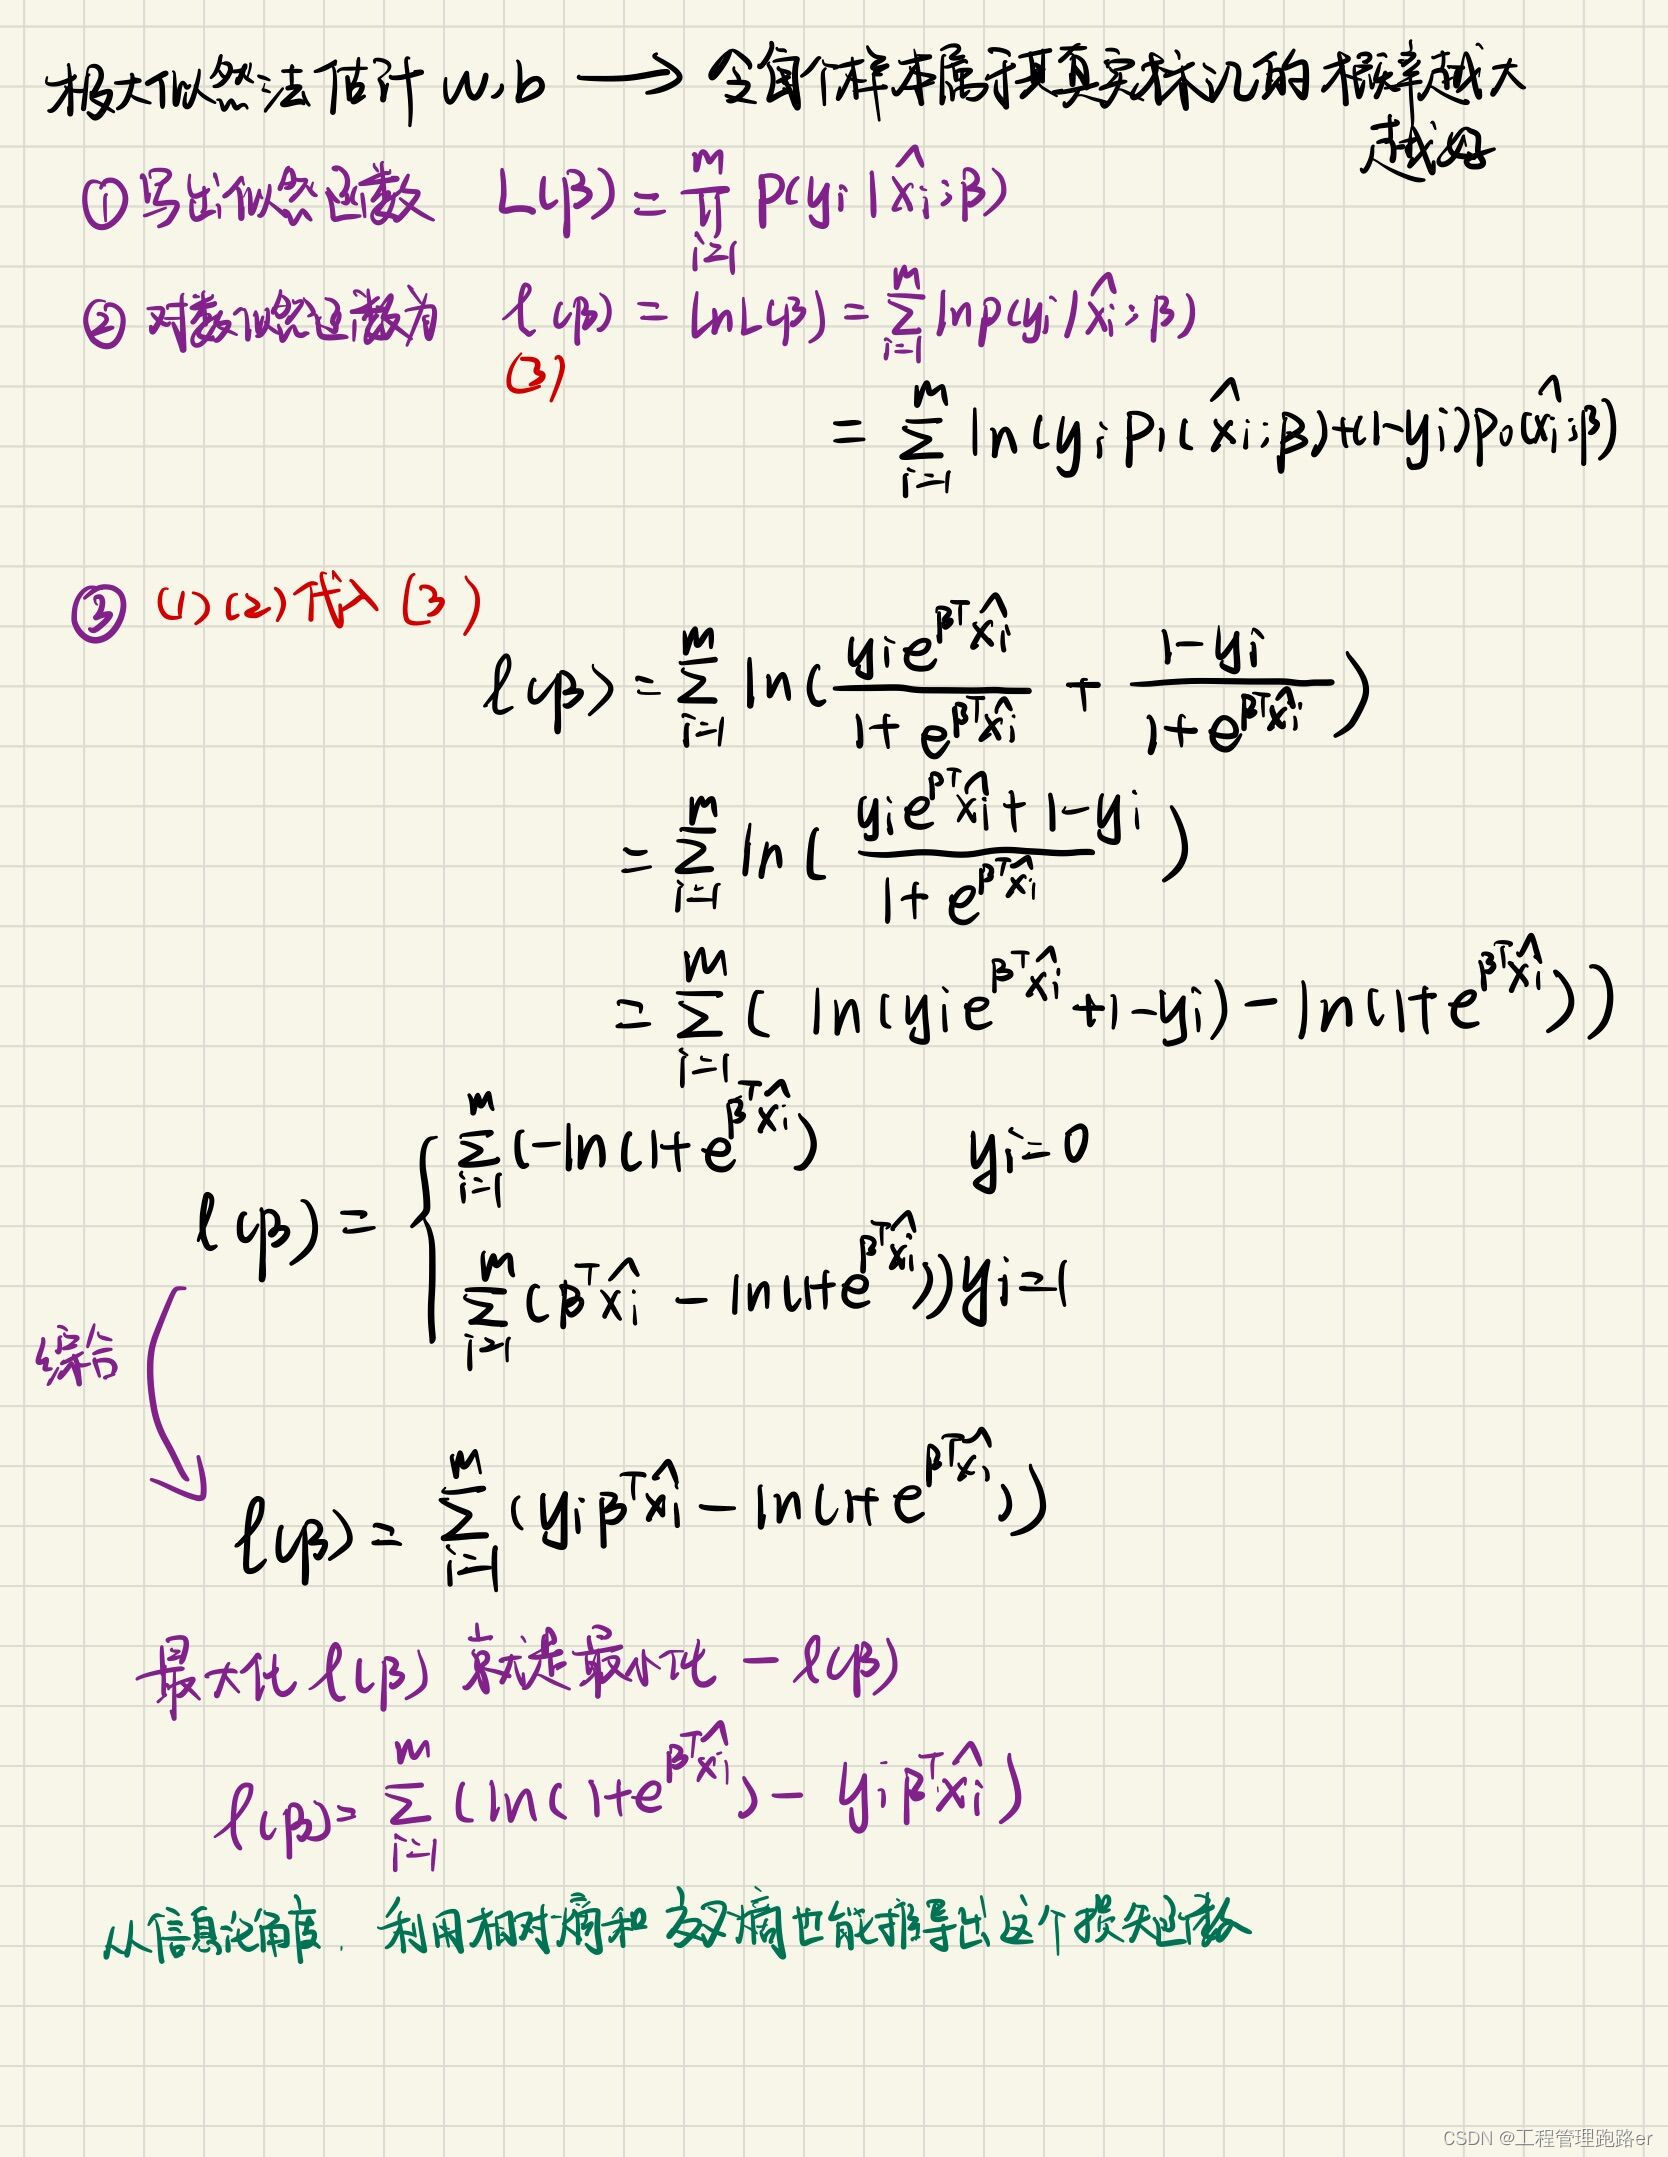 极大似然法估计 w,b ⟶ 令每个样本属于其真实标记的概率越大
越好
① 写出似然函数 L(β) = ∏_{i=1}^{m} P(yi|x̂i;β)
② 对数似然函数为 ℓ(β) = lnL(β) = ∑_{i=1}^{m} lnp(yi|x̂i;β)
(3)
= ∑_{i=1}^{m} ln(yi P1(x̂i;β)+(1-yi)P0(x̂i;β)
③ (1)(2)代入(3)
ℓ(β) = ∑_{i=1}^{m} ln( yi e^{β^T x̂i} / (1+e^{β^T x̂i}) + (1-yi) / (1+e^{β^T x̂i}) )
= ∑_{i=1}^{m} ln( (yi e^{β^T x̂i} + 1-yi) / (1+e^{β^T x̂i}) )
= ∑_{i=1}^{m} ( ln(yi e^{β^T x̂i} +1-yi) - ln(1+e^{β^T x̂i}) )
ℓ(β) = { ∑_{i=1}^{m} (-ln(1+e^{β^T x̂i}) yi=0
∑_{i=1}^{m} (β^T x̂i - ln(1+e^{β^T x̂i})) yi=1
综合
ℓ(β) = ∑_{i=1}^{m} (yi β^T x̂i - ln(1+e^{β^T x̂i}))
最大化 ℓ(β) 就是最小化 -ℓ(β)
ℓ(β) = ∑_{i=1}^{m} (ln(1+e^{β^T x̂i}) - yi β^T x̂i)
从信息论角度, 利用相对熵和交叉熵也能推导出这个损失函数
CSDN @工程管理跑路er